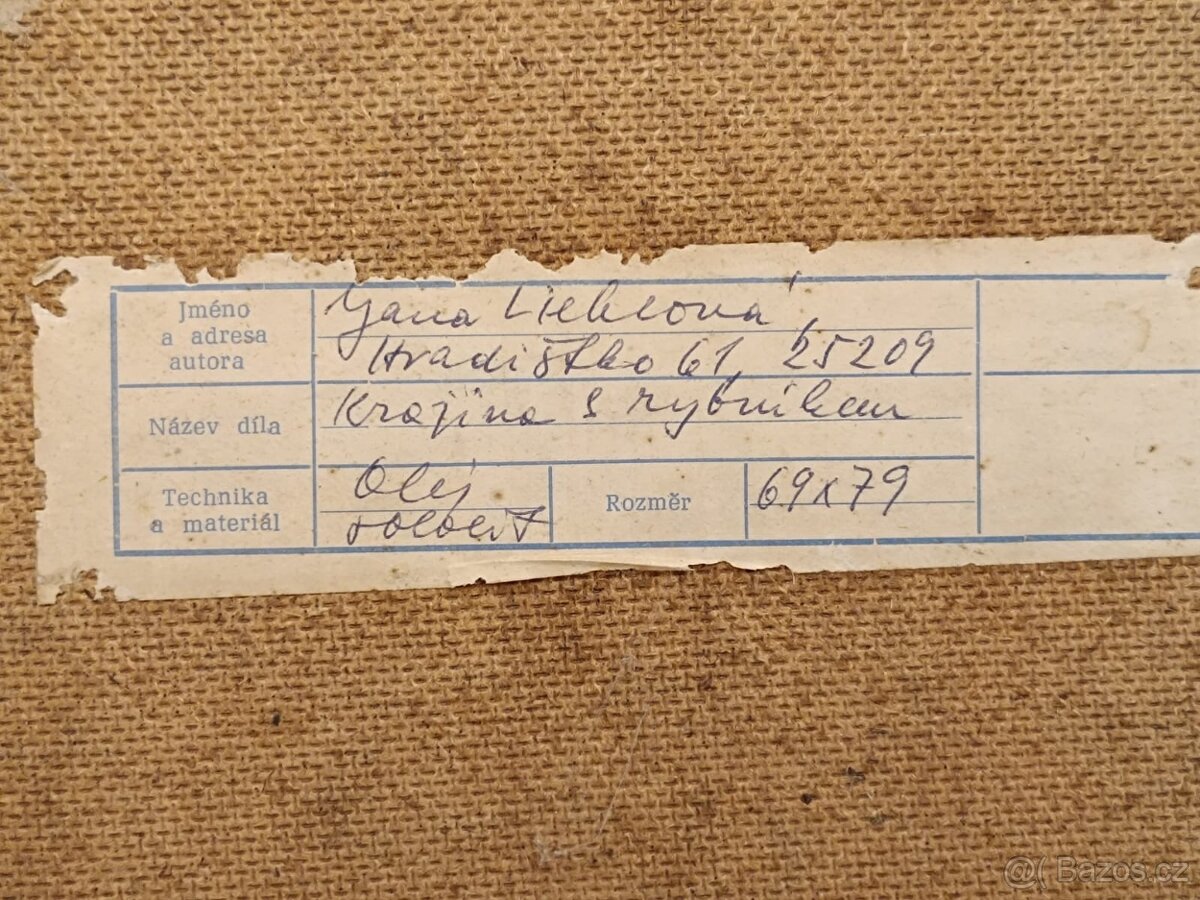 Jméno
a adresa
autora
Jana Lieblová
Hradištko 61, 25209
Název díla
Krajina s rybníkem
Technika
a materiál
Olej
sololit
Rozměr
69x79
@( Bazos.cz